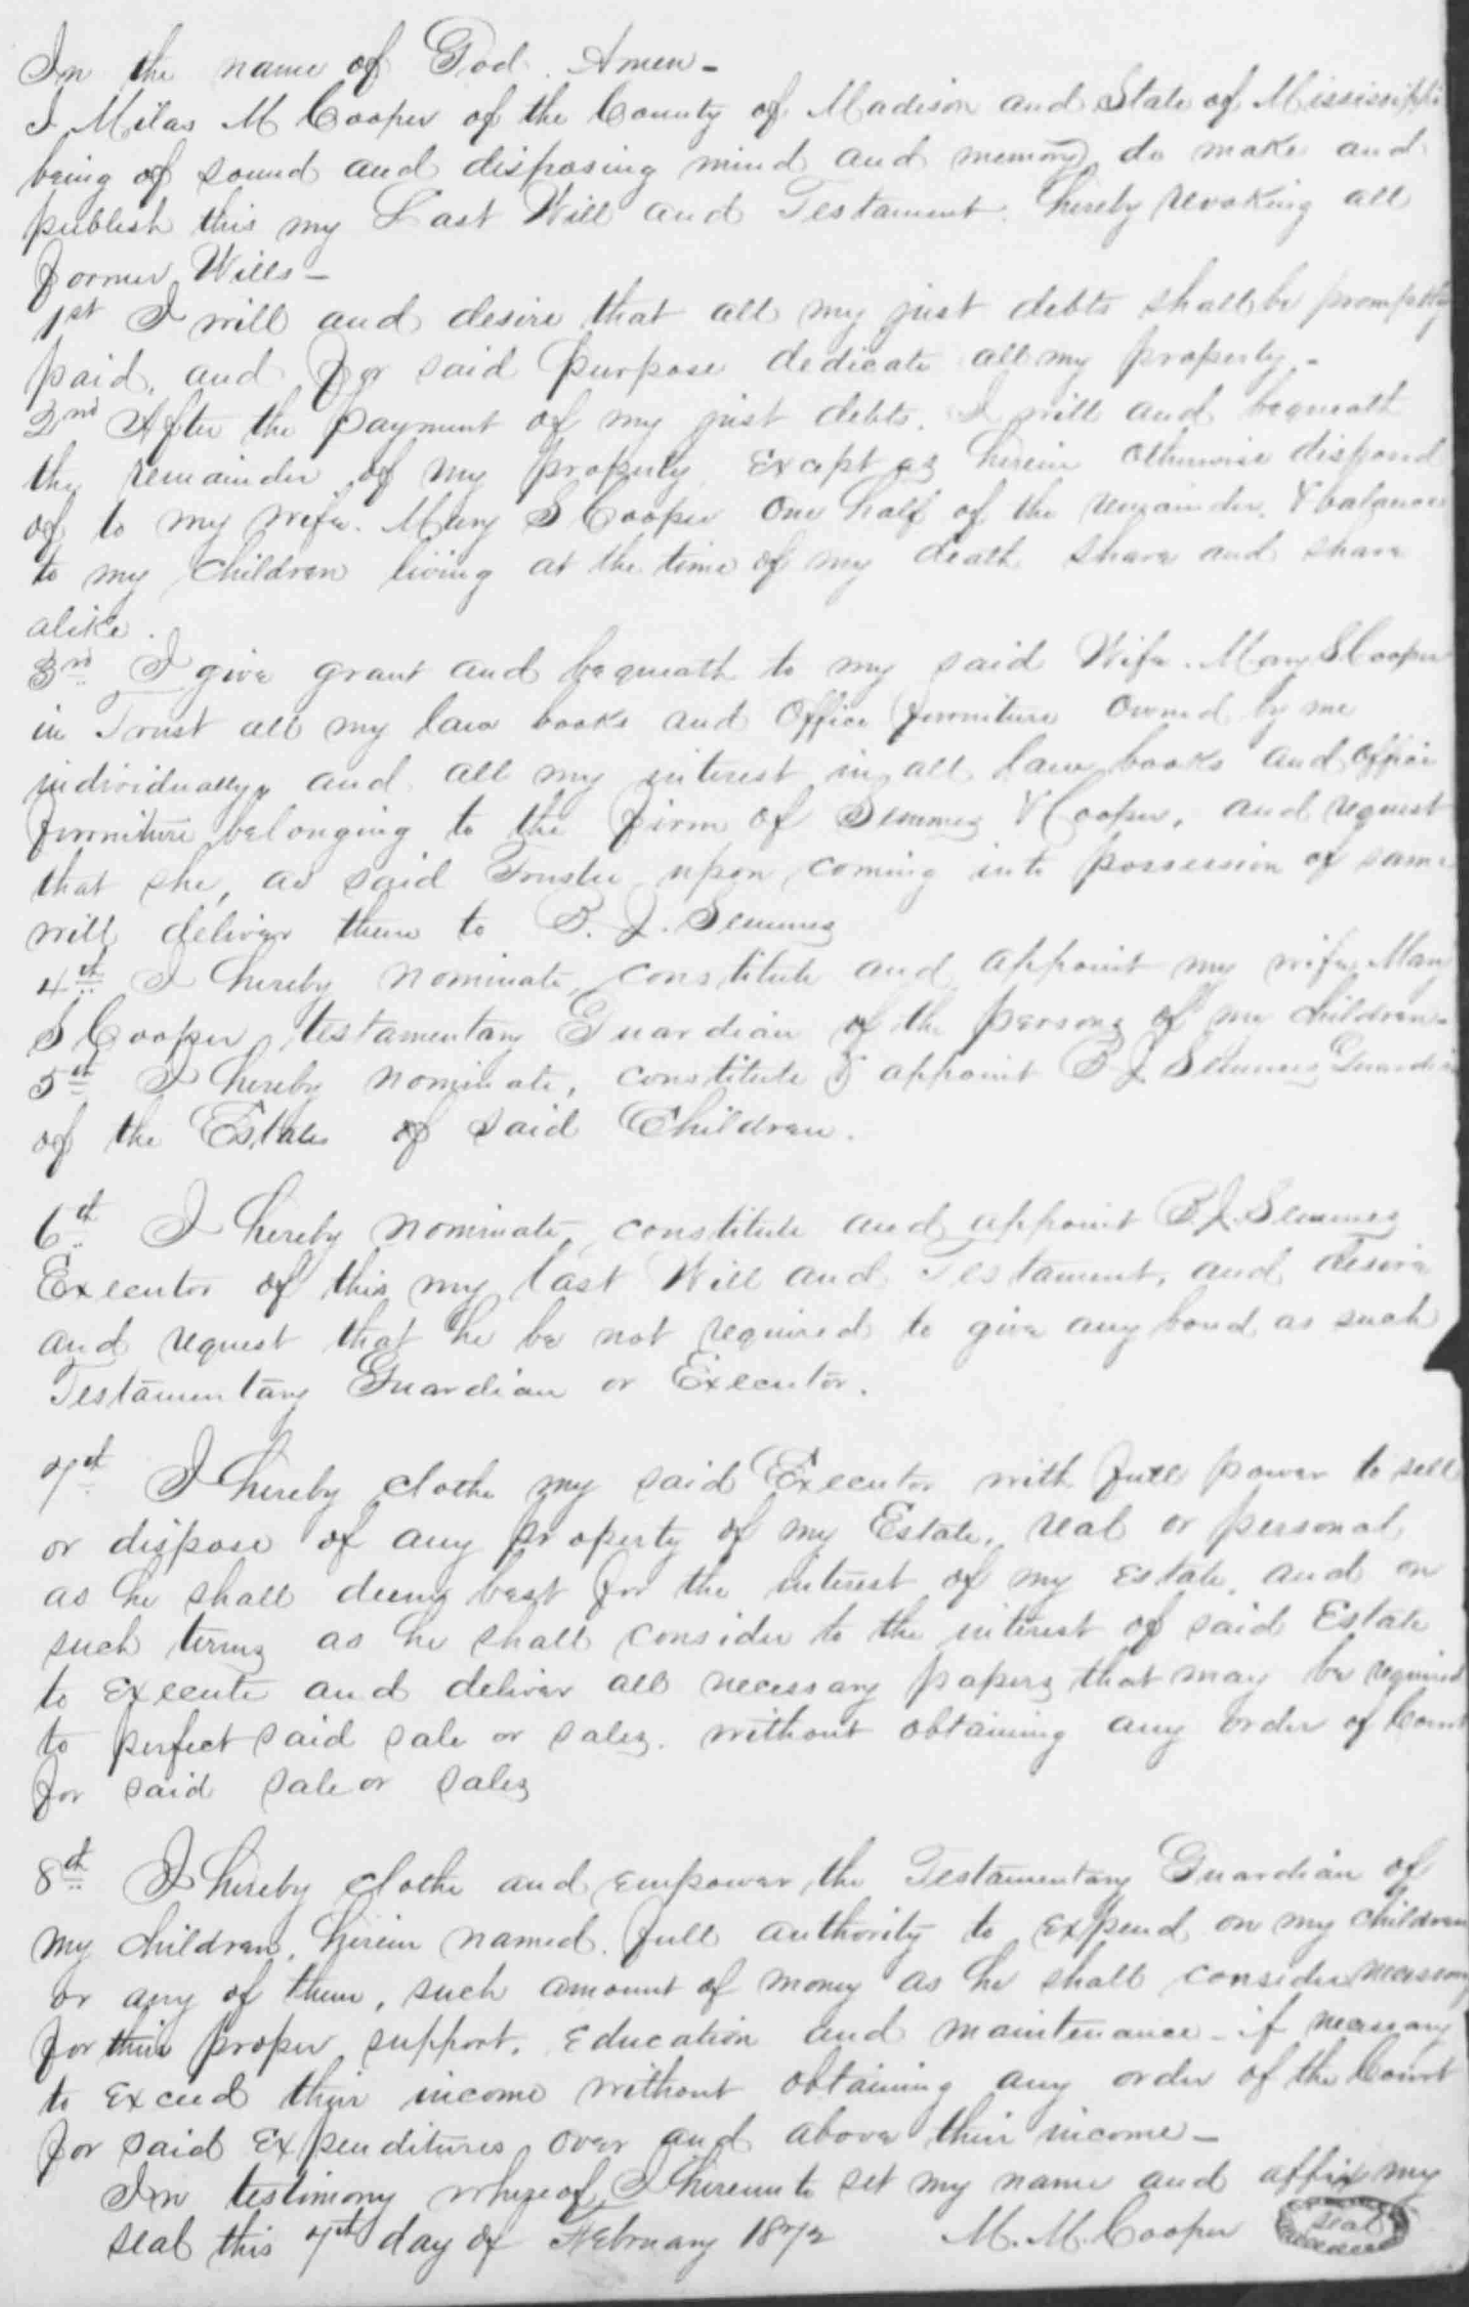 In the name of God. Amen-
I Milas M Cooper of the County of Madison and State of Mississippi
being of sound and disposing mind and memory do make and
publish this my Last Will and Testament. hereby revoking all
former Wills-
1st I will and desire that all my just debts shall be promptly
paid, and for said purpose dedicate all my property-
2nd After the payment of my just debts. I will and bequeath
the remainder of my property except as herein otherwise disposed
of to my wife. Mary S Cooper one half of the remainder. & balance
to my children living at the time of my death share and share
alike.
3rd I give grant and bequeath to my said Wife. Mary S Cooper
in Trust all my law books and Office furniture owned by me
individually, and all my interest in all law books and office
furniture belonging to the firm of Semmes & Cooper, and request
that she, as said Trustee upon coming into possession of same
will deliver them to B. J. Semmes
4th I hereby nominate, constitute and appoint my wife Mary
S Cooper testamentary Guardian of the persons of my children-
5th I hereby nominate, constitute & appoint B J Semmes Guardian
of the Estates of said Children.
6th I hereby nominate, constitute and appoint B. J. Semmes
Executor of this my last Will and Testament, and desire
and request that he be not required to give any bond as such
Testamentary Guardian or Executor.
7th I hereby clothe my said Executor with full power to sell
or dispose of any property of my Estate, real or personal,
as he shall deem best for the interest of my estate, and on
such terms as he shall consider to the interest of said Estate
to execute and deliver all necessary papers that may be required
to perfect said sale or sales. without obtaining any order of Court
for said sale or sales
8th I hereby clothe and empower the Testamentary Guardian of
my children, herein named. full authority to expend on my children
or any of them, such amount of money as he shall consider necessary
for their proper support, education and maintenance- if necessary
to exceed their income without obtaining any order of the Court
for said expenditures over and above their income-
In testimony whereof I hereunto set my name and affix my
seal this 7th day of February 1872 M. M. Cooper seal